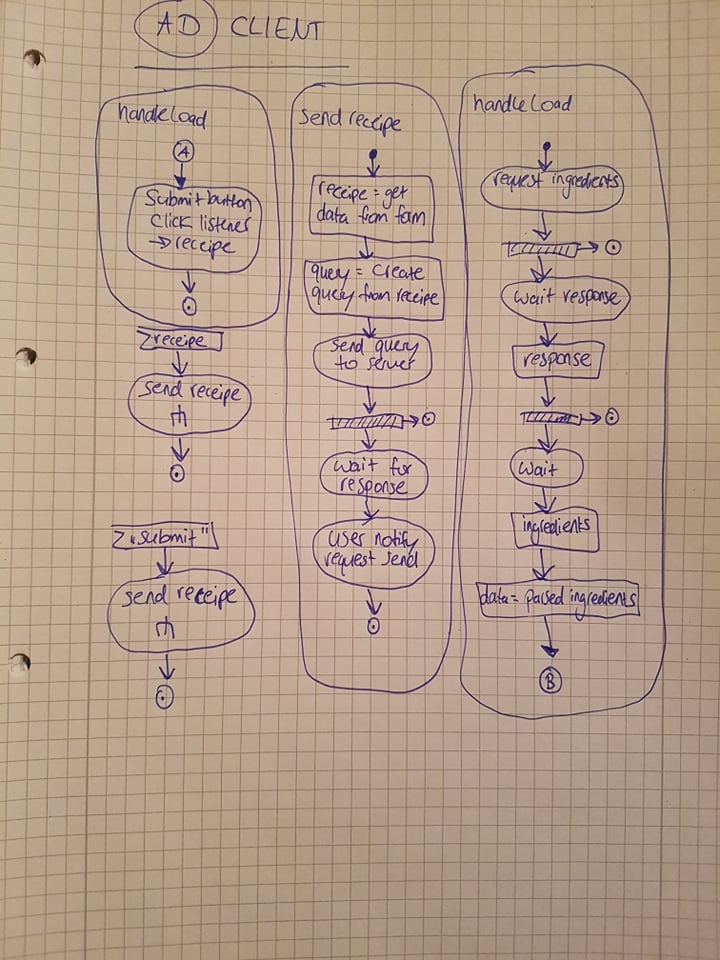 AD CLIENT
handleLoad
A
Submit button
click listener
→ receipe
receipe
send receipe
"submit"
send receipe
send receipe
receipe = get
data from form
query = create
query from receipe
send query
to server
wait for
response
user notify
request send
handleLoad
request ingredients
wait response
response
wait
ingredients
data = parsed ingredients
B